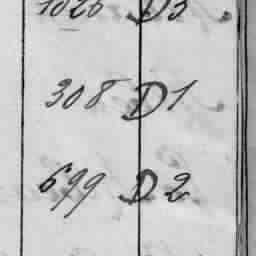 1026 D3
308 D1
699 D2